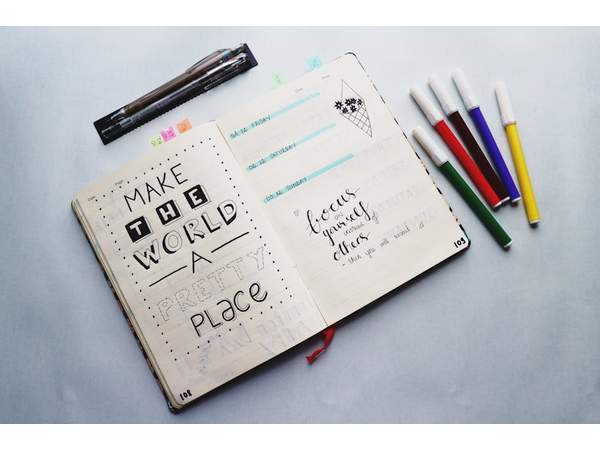 MAKE
THE
WORLD
A
PRETTY
PLACE
108
FRIDAY
SATURDAY
SUNDAY
focus
on
yourself
instead of
others
then you will
it
109